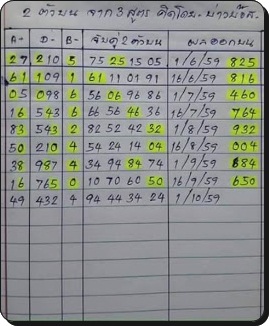 2 ตัวบน จาก 3 สูตร คิดโดย
A- D- B- จับคู่ 2 ตัวบน ผลออกบน
27 210 5 75 25 15 05 1/6/59 825
61 109 1 61 11 01 91 16/6/59 816
05 098 6 56 06 96 86 1/7/59 460
16 543 6 66 56 46 36 16/7/59 764
83 543 2 82 52 42 32 1/8/59 932
50 210 4 54 24 14 04 16/8/59 004
38 987 4 34 94 84 74 1/9/59 684
16 765 0 10 70 60 50 16/9/59 650
49 432 4 94 44 34 24 1/10/59